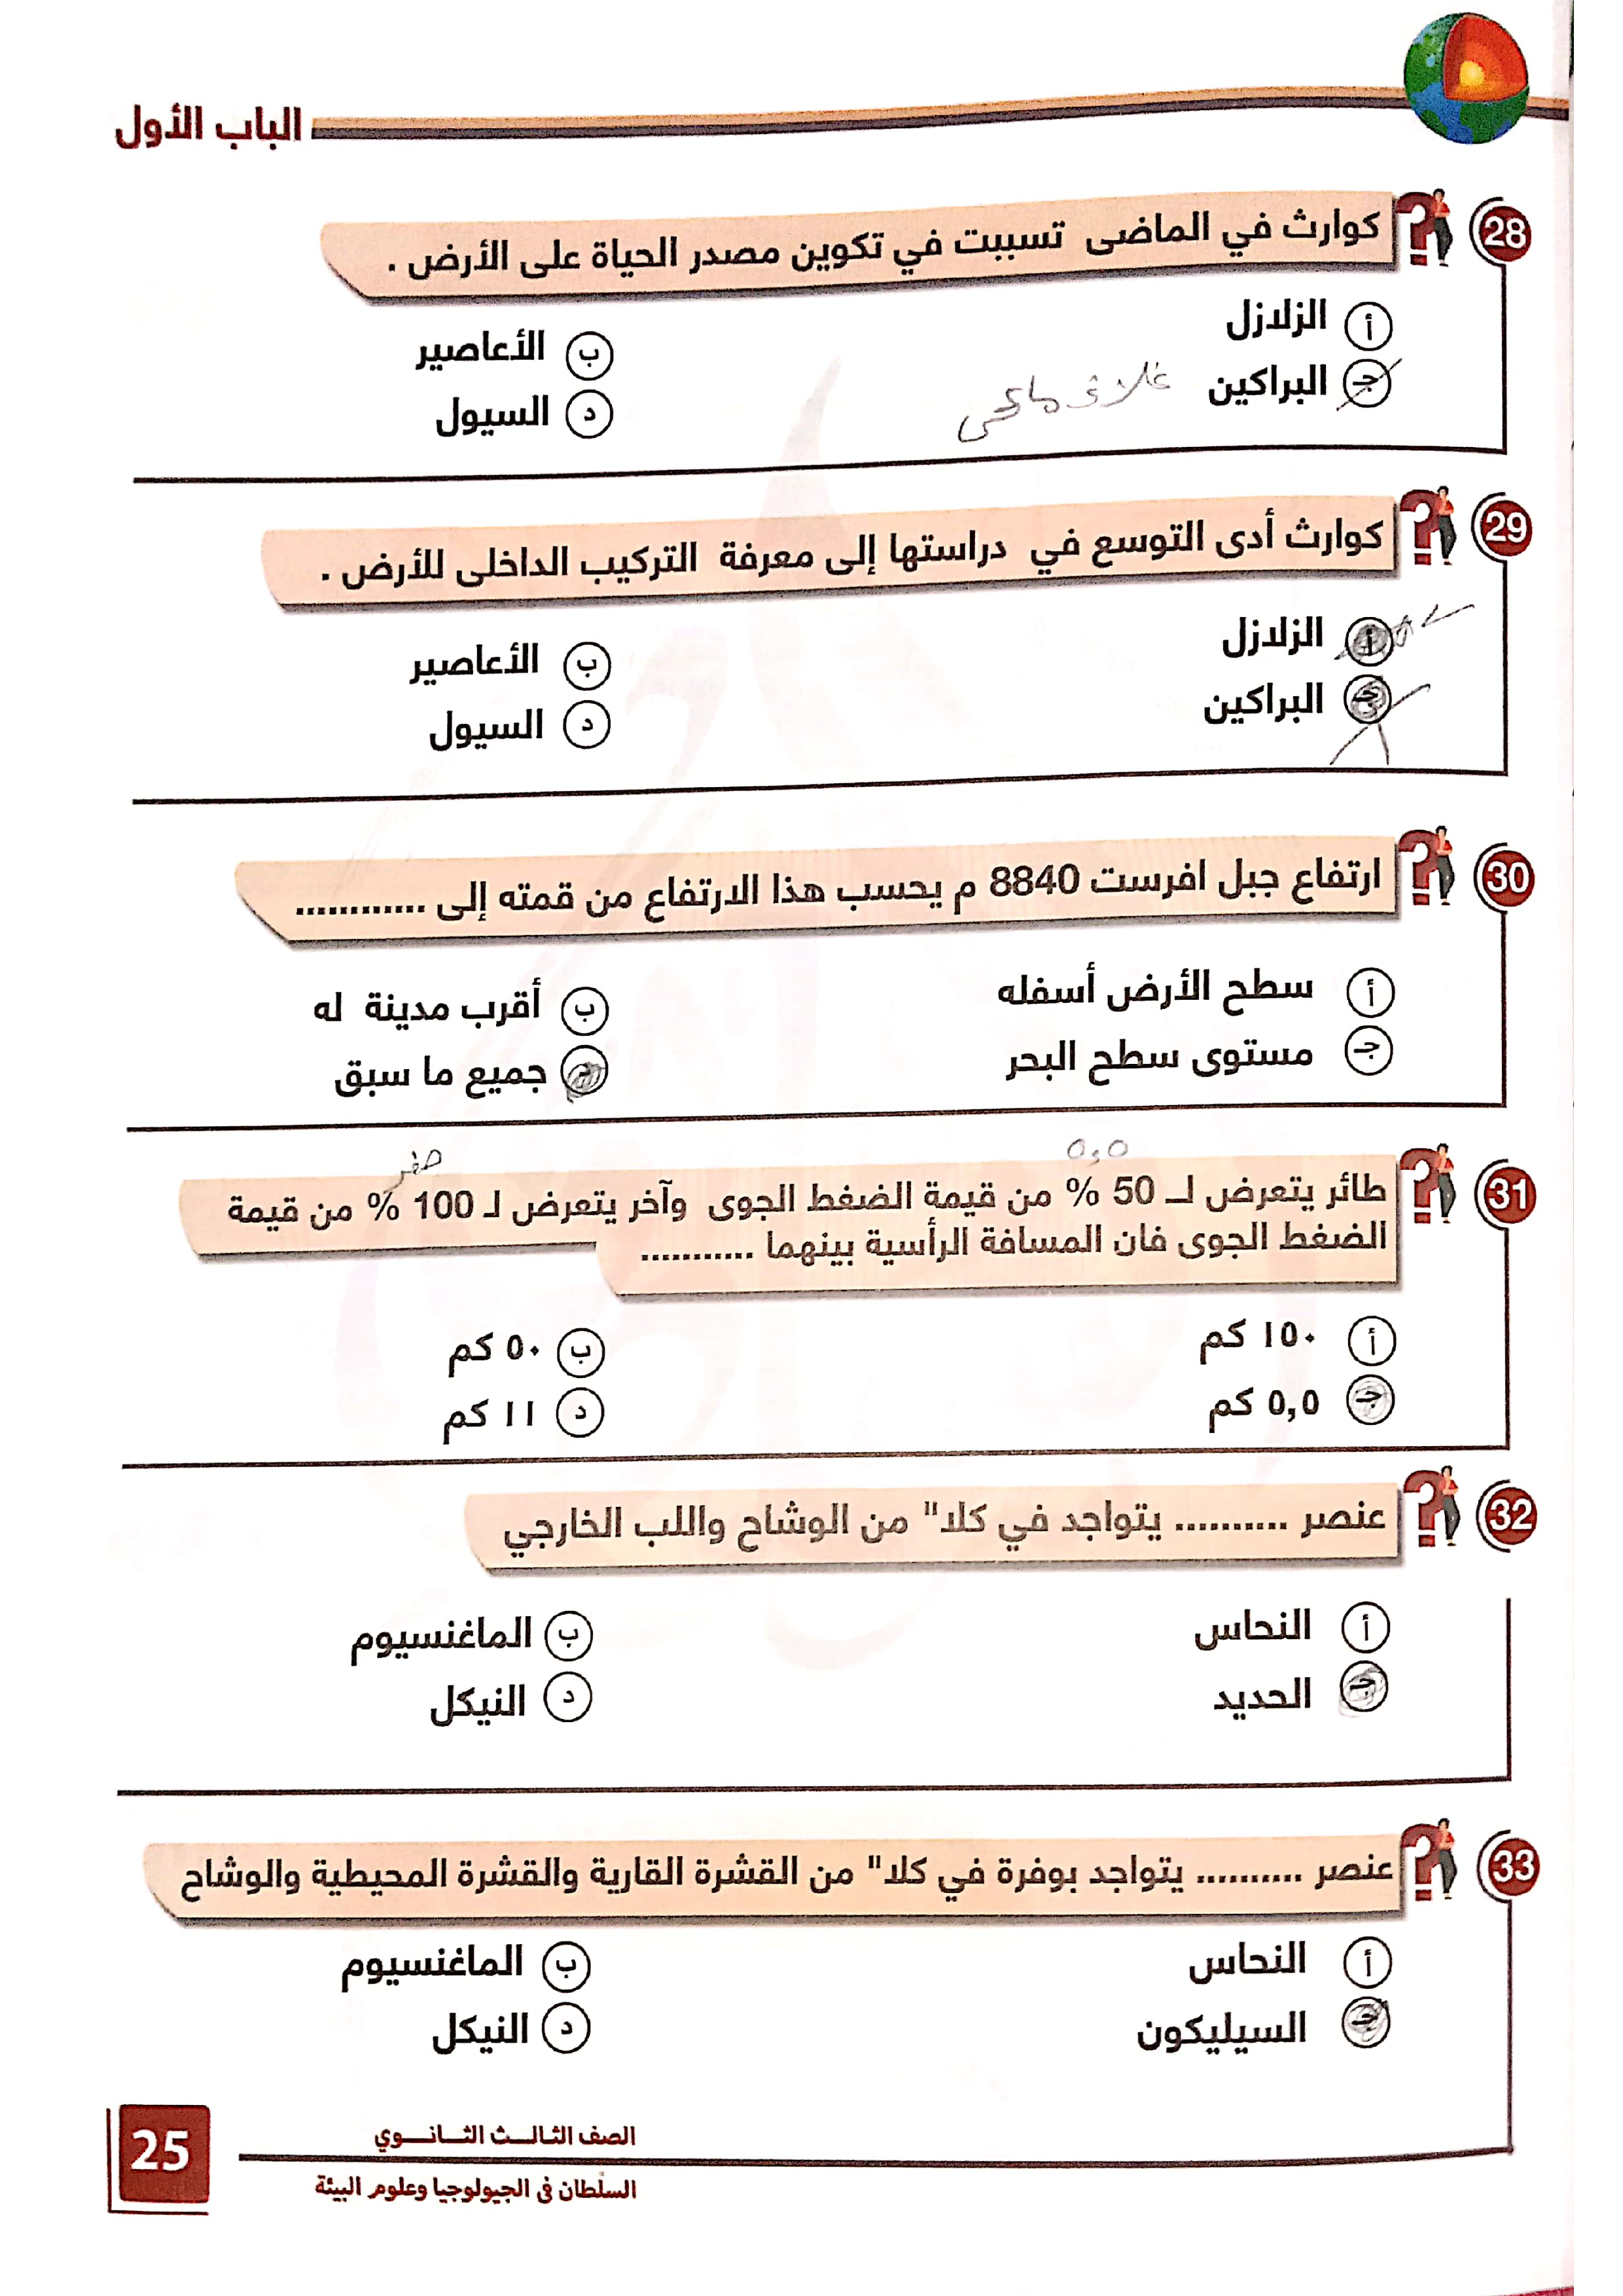 الباب الأول
28
كوارث في الماضى تسببت في تكوين مصدر الحياة على الأرض .
أ الزلازل
ب الأعاصير
جـ البراكين
غلاف مائى
د السيول
29
كوارث أدى التوسع في دراستها إلى معرفة التركيب الداخلى للأرض .
أ الزلازل
ب الأعاصير
جـ البراكين
د السيول
30
ارتفاع جبل افرست 8840 م يحسب هذا الارتفاع من قمته إلى ............
أ سطح الأرض أسفله
ب أقرب مدينة له
جـ مستوى سطح البحر
د جميع ما سبق
٥,٥
صفر
31
طائر يتعرض لـ 50 % من قيمة الضغط الجوى وآخر يتعرض لـ 100 % من قيمة
الضغط الجوى فان المسافة الرأسية بينهما ...........
أ ١٥٠ كم
ب ٥٠ كم
جـ ٥,٥ كم
د ١١ كم
32
عنصر .......... يتواجد في كلا" من الوشاح واللب الخارجي
أ النحاس
ب الماغنسيوم
جـ الحديد
د النيكل
33
عنصر .......... يتواجد بوفرة في كلا" من القشرة القارية والقشرة المحيطية والوشاح
أ النحاس
ب الماغنسيوم
جـ السيليكون
د النيكل
الصف الثالث الثانوي
السلطان فى الجيولوجيا وعلوم البيئة
25